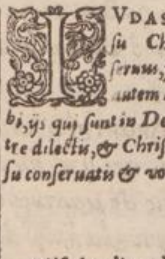 IVDAS
su Ch
seruus,
autem
bi, ijs qui sunt in De
tre dilectis, & Chris
su conseruatis & vo